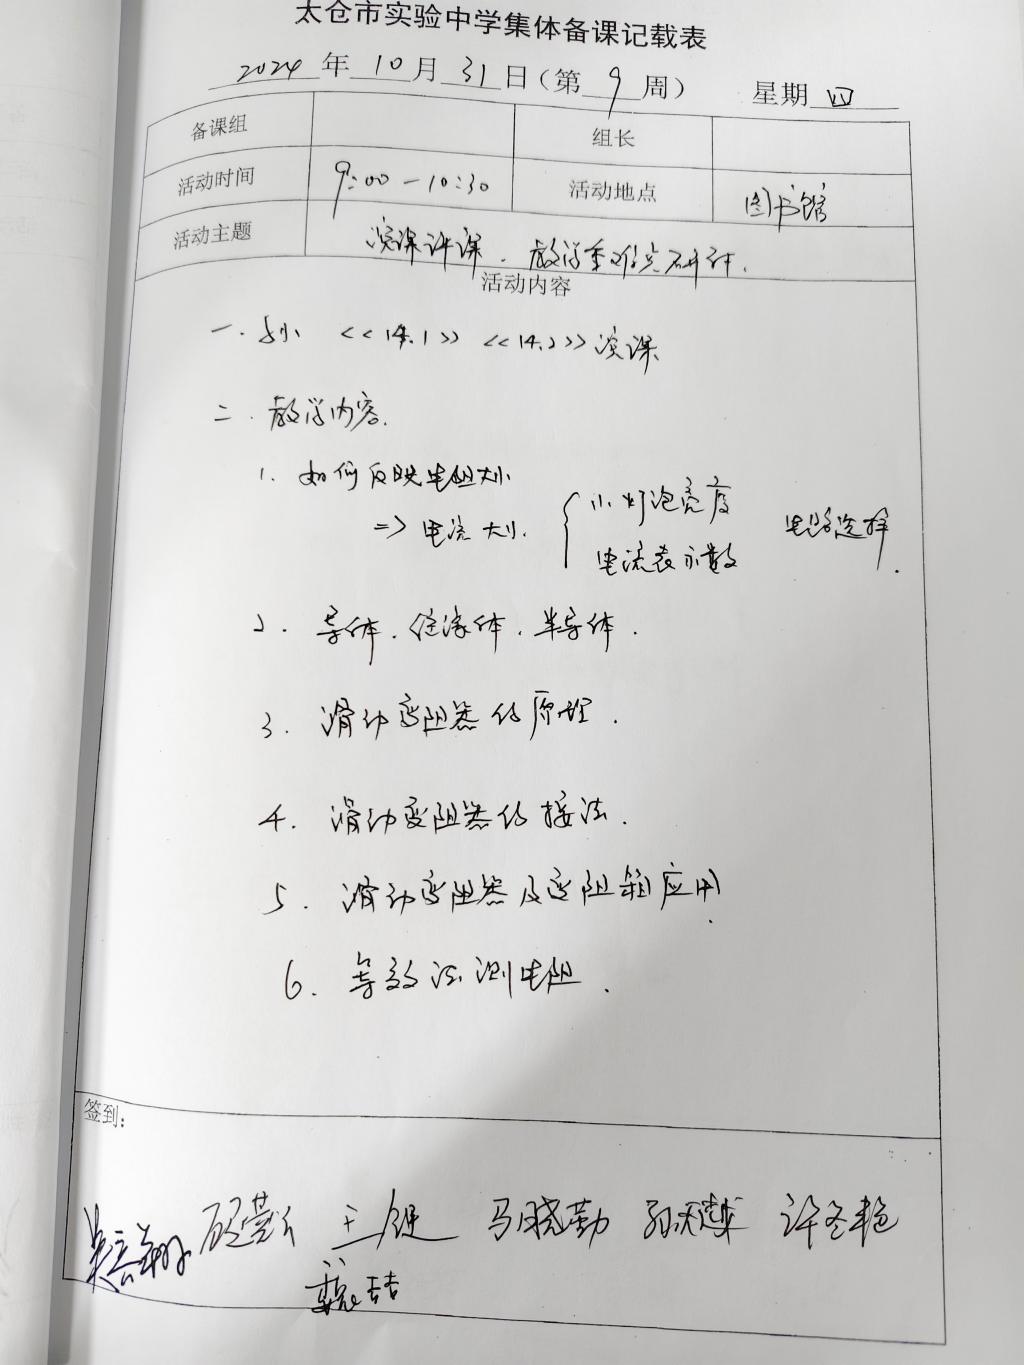 太仓市实验中学集体备课记载表
2024 年 10 月 31 日（第 9 周） 星期 四
备课组 组长
活动时间 9:00-10:30 活动地点 图书馆
活动主题 演课评课. 教学重难点研讨.
活动内容
一. <<14.1>> <<14.2>> 演课
二. 教学内容.
1. 如何反映电阻大小
=> 电流大小. { 小灯泡亮度 电流表示数 电路选择.
2. 导体. 绝缘体. 半导体.
3. 滑动变阻器的原理.
4. 滑动变阻器的接法.
5. 滑动变阻器及变阻箱应用.
6. 等效法测电阻.
签到:
马晓勤 许冬艳